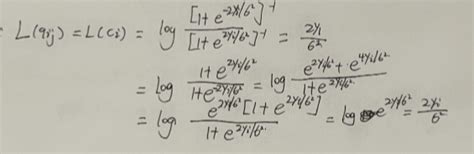 L(qij) = L(ci) = log [1+e^{-2yi/6²}]^{-1} / [1+e^{2yi/6²}]^{-1} = 2yi/6²
= log (1+e^{2yi/6²}) / (1+e^{-2yi/6²}) = log (e^{2yi/6²} + e^{4yi/6²}) / (1+e^{2yi/6²})
= log e^{2yi/6²}[1+e^{2yi/6²}] / (1+e^{2yi/6²}) = log e^{2yi/6²} = 2yi/6²